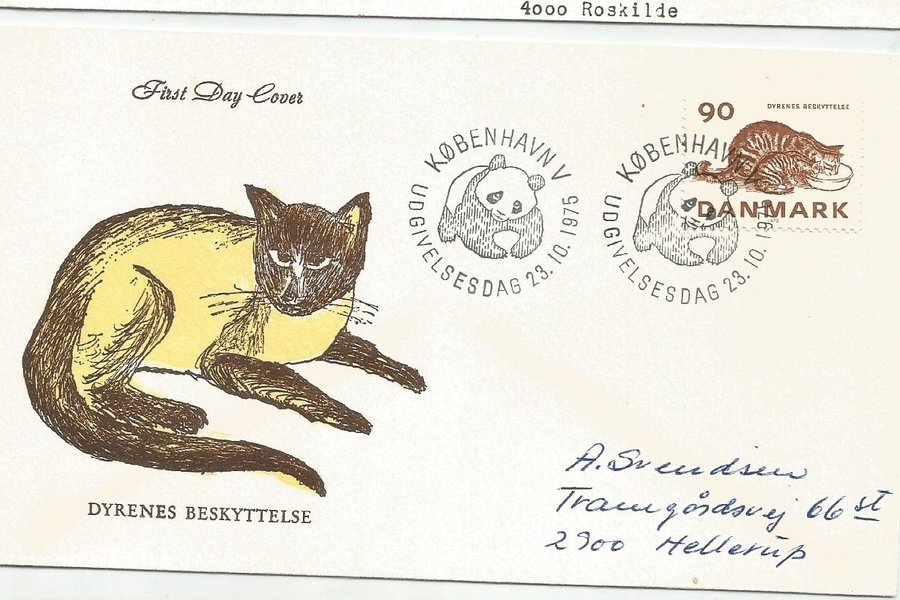 4000 Roskilde
First Day Cover
90
DYRENES BESKYTTELSE
DANMARK
KØBENHAVN V
UDGIVELSESDAG 23.10.1975
KØBENHAVN V
UDGIVELSESDAG 23.10.1975
DYRENES BESKYTTELSE
A. Svendsen
Tranegårdsvej 66 st
2900 Hellerup